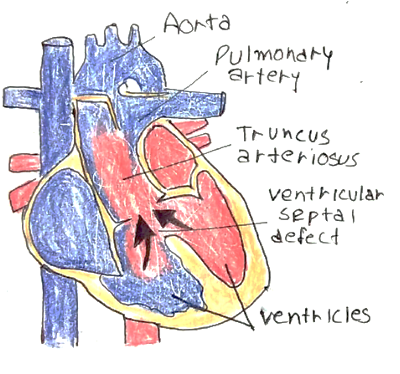 Aorta
Pulmonary
artery
Truncus
arteriosus
ventricular
septal
defect
ventricles